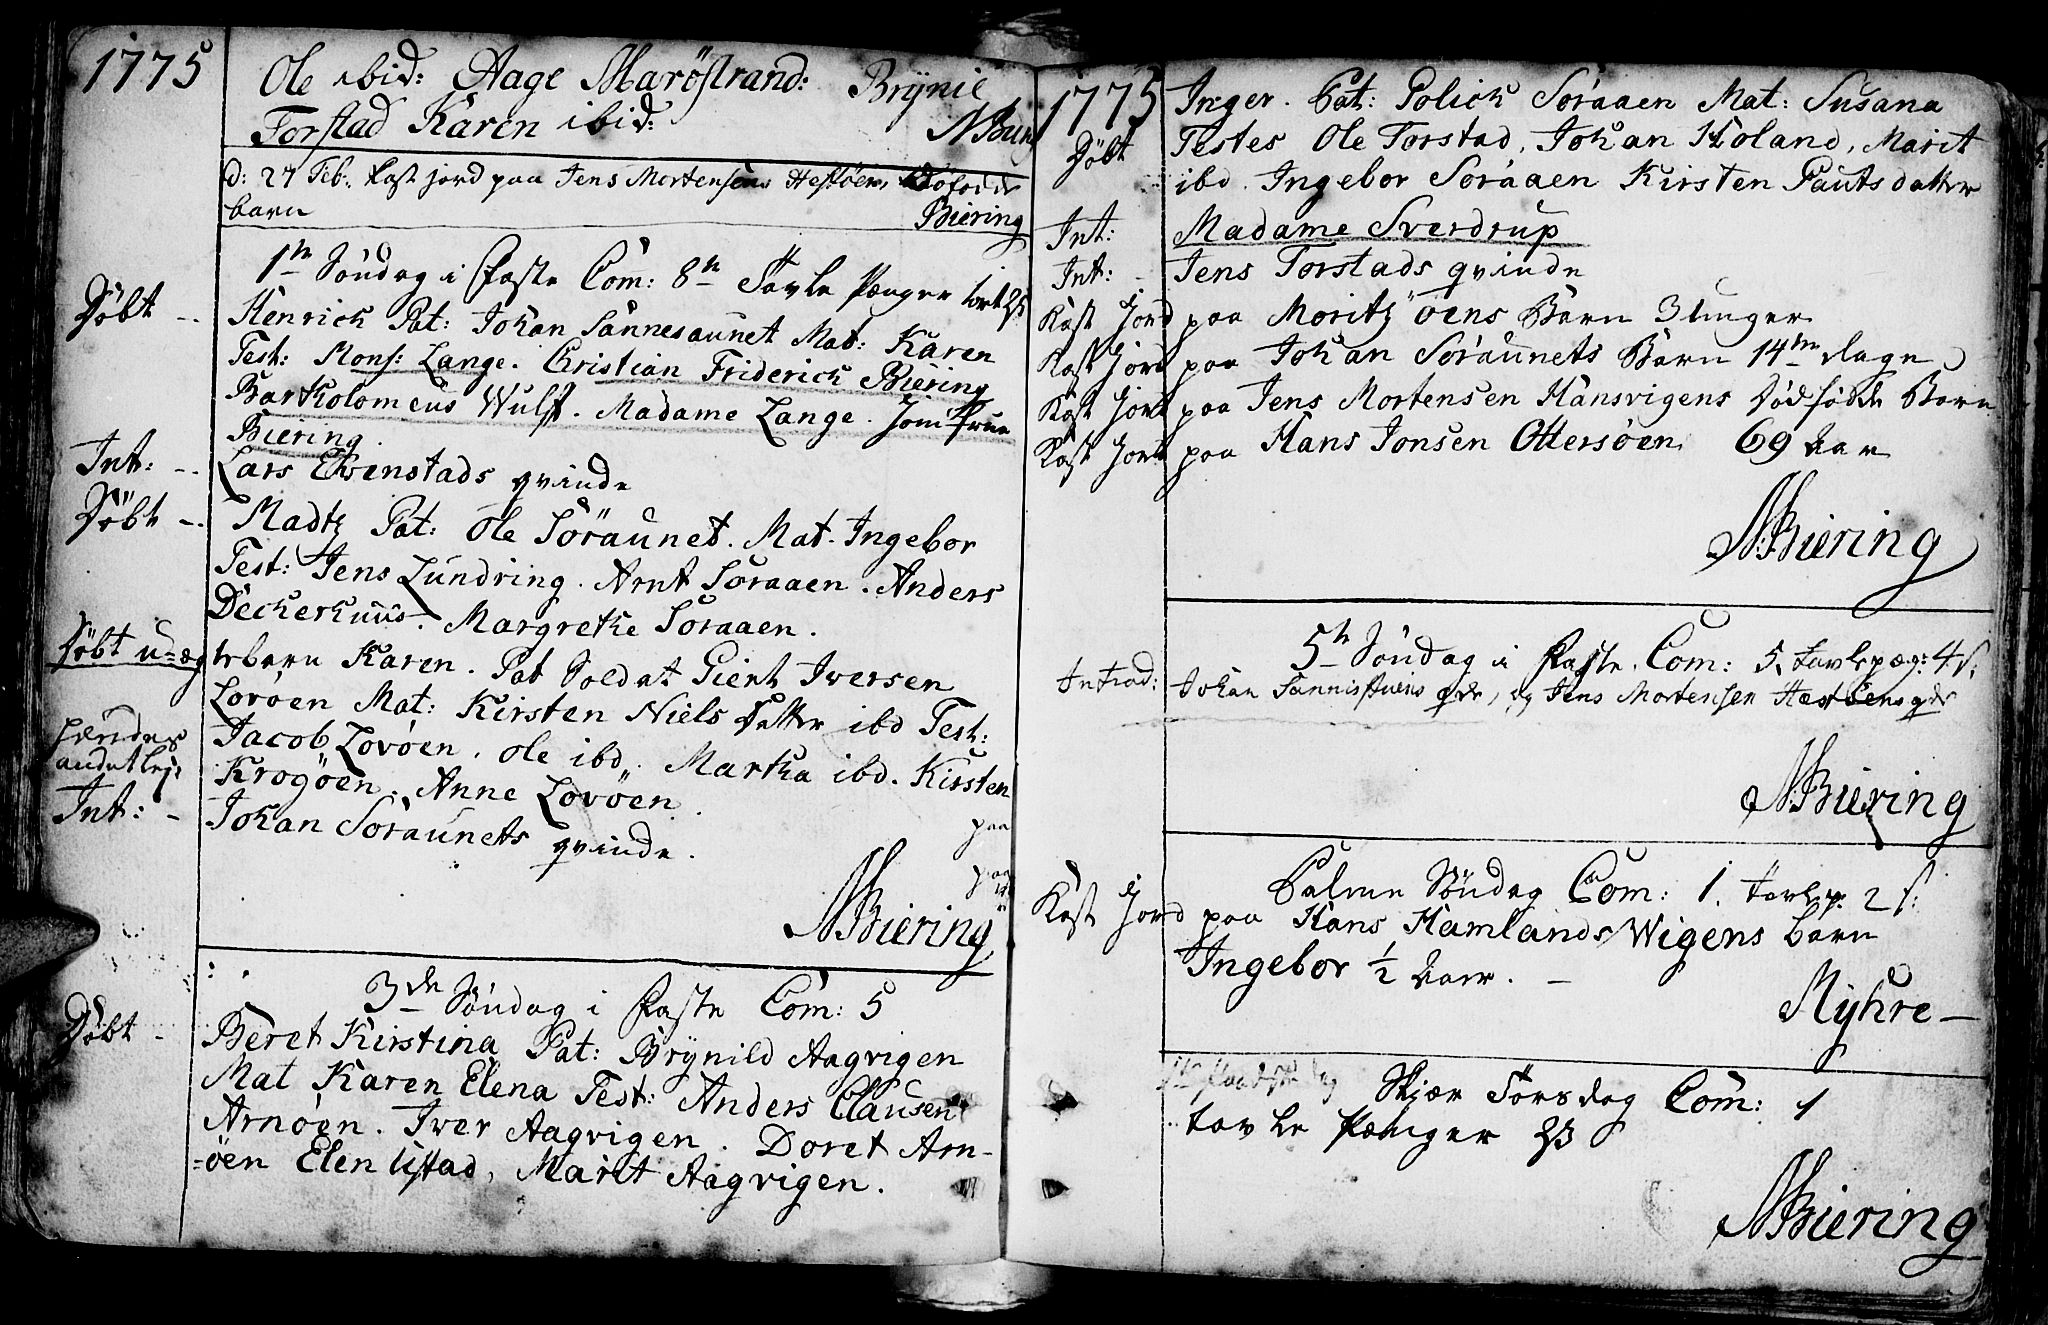 1775
Ole ibid: Aage Maröstrand: Brÿnie
Forstad Karen ibid:
d: 27 Feb: kast jord paa Jens Mortensens Hestöen
barn
Biering
1te Söndag i Faste Com: 8te Tavle Penger
Döbt -- Henrich Pat: Johan Sannesaunet Mat: Karen
Test: Mons: Lange. Christian Friderich Biering
Bartholomeus Wulf. Madame Lange. Jomfrue
Biering.
Int: -- Lars Evenstads qvinde
Döbt -- Madtz Pat: Ole Söraunet. Mat. Ingebor
Test: Jens Lundring. Arnt Soraaen. Anders
Deckerhuus. Margrethe Soraaen.
Döbt u-ægtebarn Karen. Pat Soldat Pierk Iversen
Lovöen Mat: Kirsten Niels Datter ibd Test:
Jacob Lovöen. Ole ibd. Martha ibd. Kirsten
Krogöen. Anne Lovöen.
Int: - Johan Soraunets qvinde.
NBiering
3de Söndag i Faste Com: 5
Döbt - Beret Kirstina Pat: Brÿnild Aagvigen
Mat Karen Elena Test: Anders Clausen
Arnöen. Iver Aagvigen. Doret Arn-
öen Elen Ustad, Marit Aagvigen.
1775 Inger. Pat: Polich Soraaen Mat: Susana
Döbt Testes Ole Torstad, Johan Holand, Marit
ibd. Ingebor Soraaen Kirsten Pauls datter
Int: Madame Sverdrup
Int: - Jens Torstads qvinde
Kast Jord paa Moritz öens Barn 3 uger
Kast Jord paa Johan Soraunets Barn 14 dage
Kast Jord paa Jens Mortensen Hansvigens Dödfödde Barn
Kast Jord paa Hans Jonsen Ottersöen 69 Aar
NBiering
5te Söndag i Faste. Com: 5. tavlepæg: 4 s:
Introd: Johan Qde, og Jens Mortensen qde
NBiering
Palme Söndag Com: 1. tavlp. 2 s:
Kast Jord paa Hans Hamlands Wigens barn
Ingebor 1/2 Aar. -
Myhre-
Skjær Torsdag Com: 1
tavle Penger
NBiering